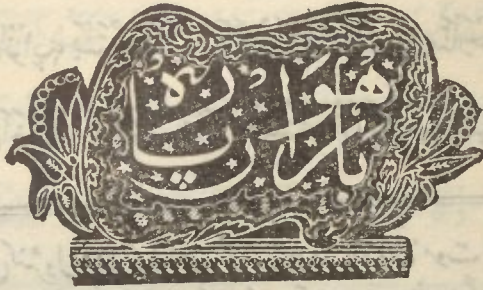 بارھواں پارہ